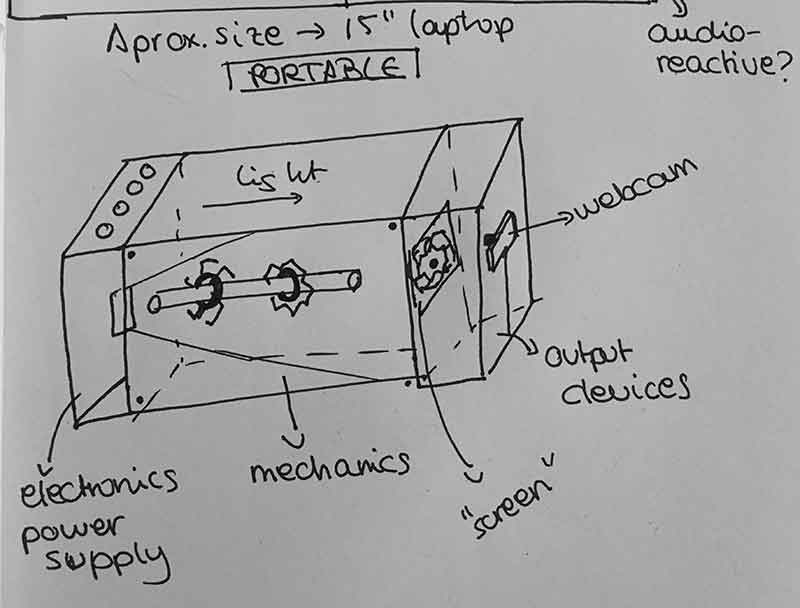 Aprox. size → 15" laptop
PORTABLE
audio-
reactive?
light
webcam
output
devices
mechanics
"screen"
electronics
power
supply